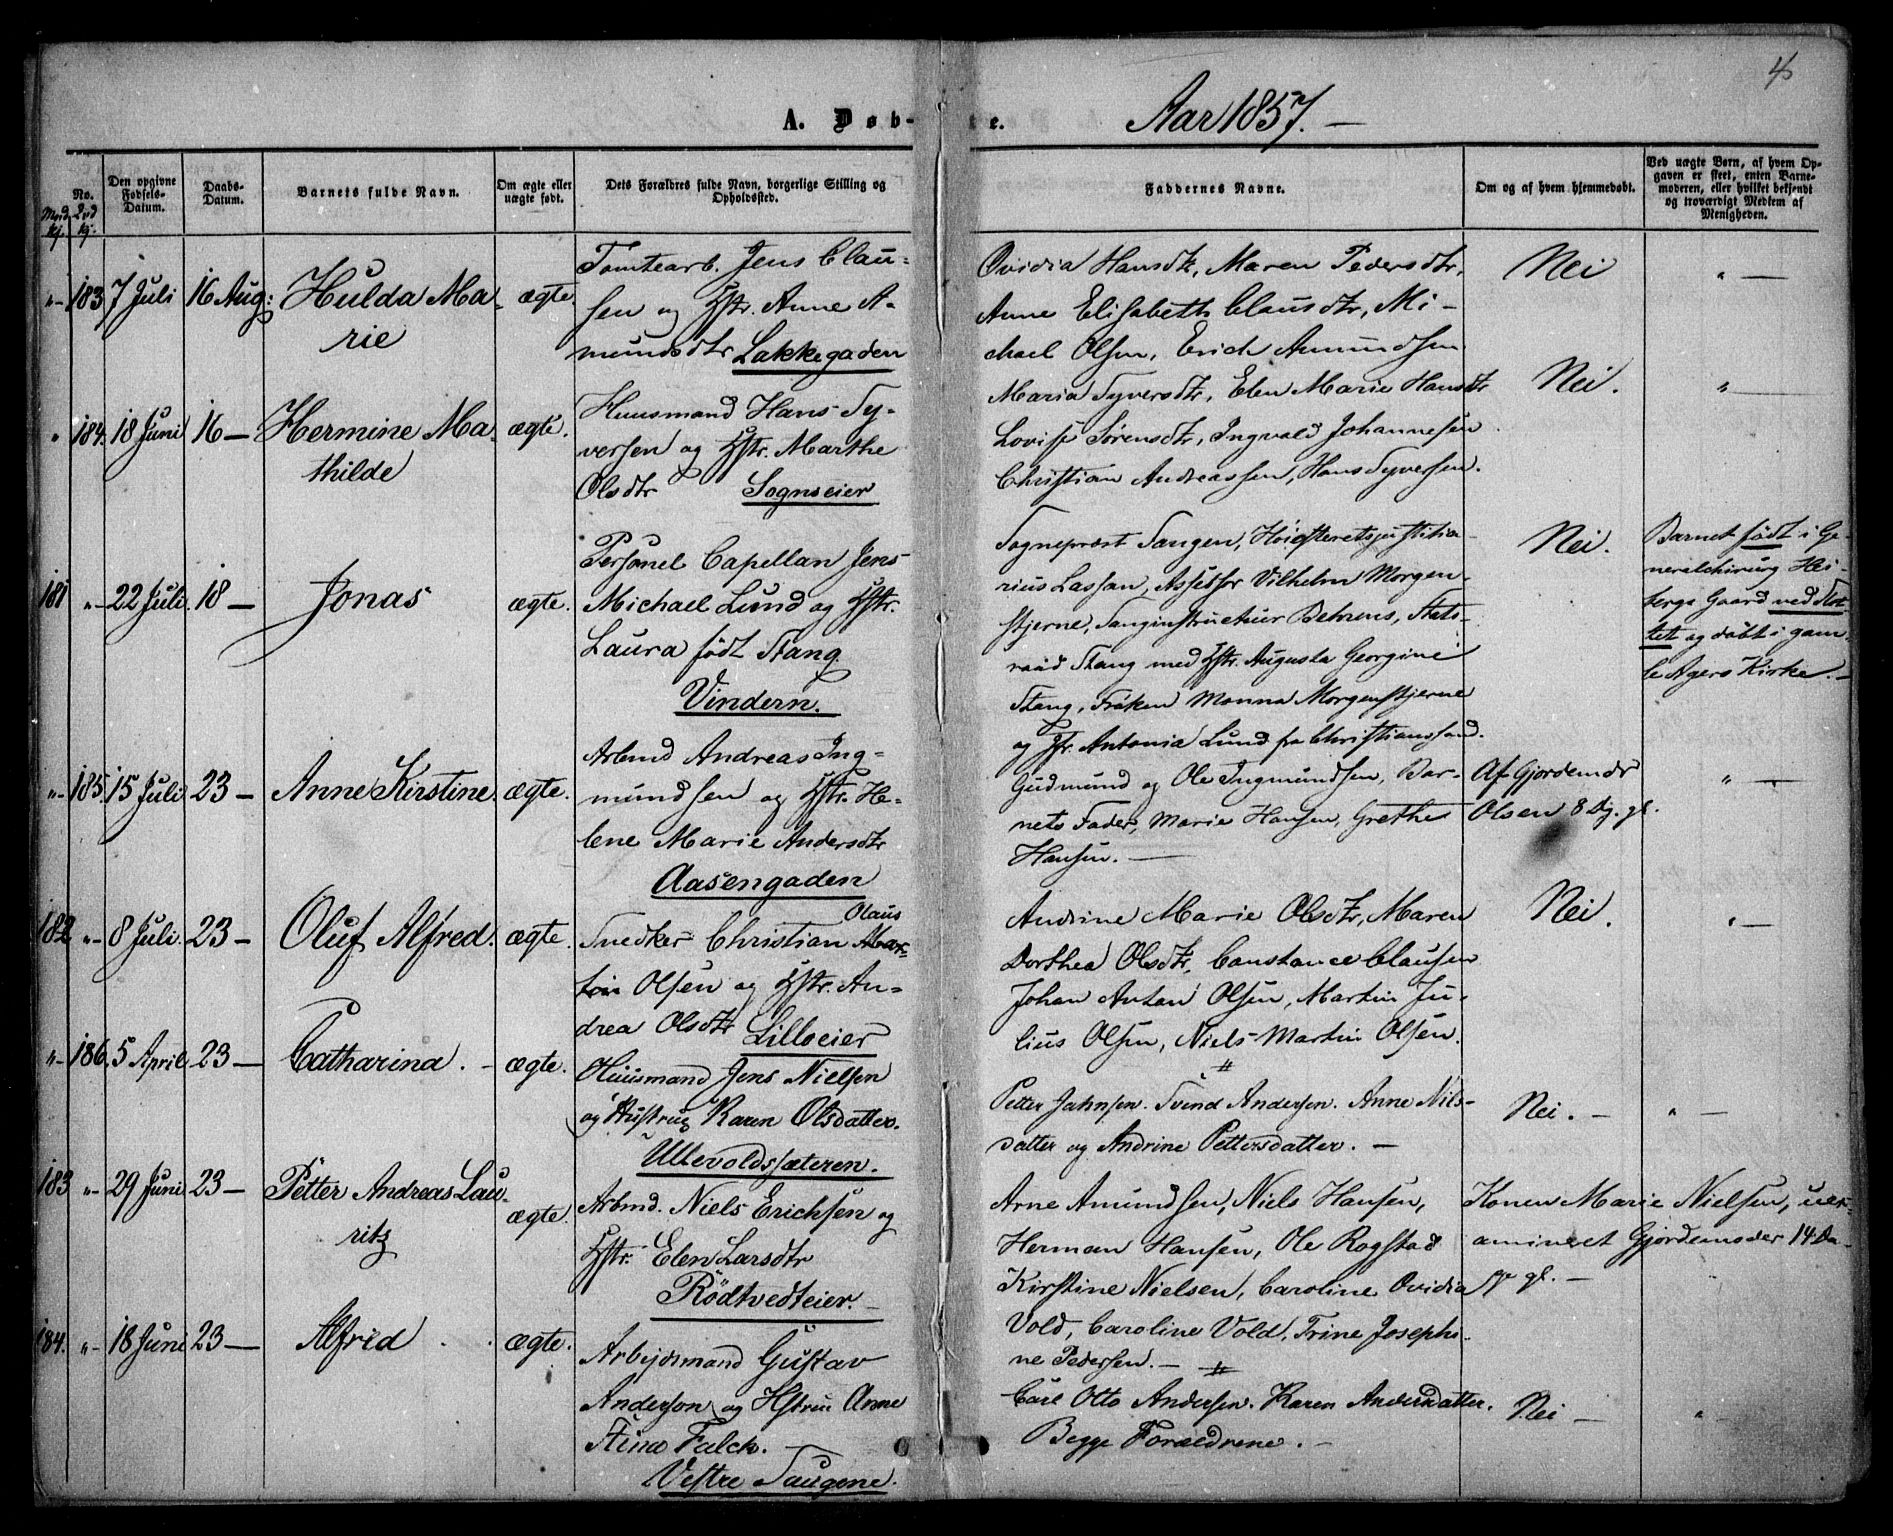 4
A. Døb-
te.
Aar 1857. —
No.
Mand kj. Qvd kj.
Den opgivne Fødsels-Datum.
Daabs-Datum.
Barnets fulde Navn.
Om ægte eller uægte født.
Dets Forældres fulde Navn, borgerlige Stilling og Opholdssted.
Faddernes Navne.
Om og af hvem hjemmedøbt.
Ved uægte Børn, af hvem Op-
gaven er skeet, enten Barne-
moderen, eller hvilket bekjendt
og troværdigt Medlem af
Menigheden.
"- 183. 7 Juli 16 Aug: Hulda Ma-
rie
ægte.
Tomtearb. Jens Clau-
sen og Hstr. Anne A-
mundsdtr Lakkegaden
Ovidia Hansdtr, Maren Pedersdtr,
Anne Elisabeth Clausdtr, Mi-
chael Olsen, Erich Amundsen
Nei
" —
" 184. 18 Juni 16 — Hermine Ma-
thilde
ægte.
Huusmand Hans Sy-
versen og Hstr. Marthe
Olsdtr Sognseier
Maria Syversdtr, Elen Marie Hansdtr
Lovise Sørensdtr, Ingvald Johannesen
Christian Andreassen, Hans Syversen.
Nei.
" —
181 "- 22 Juli. 18 — Jonas
ægte.
Personel Capellan Jens
Michael Lund og Hstr.
Laura født Stang.
Vindern.
Sognepræst Tangen, Høiesteretsjustitia-
rius Lassen, Assessor Vilhelm Morgen-
stjerne, Sanginstructeur Behrens, Stats-
raad Stang med Hstr. Augusta Georgine
Stang, Frøken Monna Morgenstjerne
og Jfr. Antonia Lund fra Christianssand.
Nei.
Barnet født i Ge-
neralchirurg Hei-
bergs Gaard ved Slot-
tet og døbt i gam-
le Agers Kirke. —
"- 185. 15 Juli 23 — Anne Kirstine.
ægte.
Arbmd Andreas Ing-
mundsen og Hstr. He-
lene Marie Andersdtr
Aasengaden
Gudmund og Ole Ingmundsen, Bar-
nets Fader, Marie Hansen, Grethe
Hansen. —
Af Gjordemdr
Olsen 8 Dg. gl.
" —
182 "- 8 Juli. 23 — Oluf Alfred.
ægte.
Olaus
Snedker Christian Mar-
tin Olsen og Hstr. An-
drea Olsdtr Lilloeier
Andrine Marie Olsdtr, Maren
Dorthea Olsdtr, Constance Clausen
Johan Anton Olsen, Martin Ju-
lius Olsen, Niels Martin Olsen.
Nei.
" —
"- 186. 5 April 23 — Catharina. -
ægte.
Huusmand Jens Nielsen
og Hustrue Karen Olsdatter.
Ullevoldssæteren.
Petter Jahnsen. Svend Andersen. Anne Nils-
datter og Andrine Pettersdatter. —
Nei. —
" —
183 "- 29 Juni 23 — Petter Andreas Lau-
ritz
ægte.
Arbmd. Niels Erichsen og
Hstr. Elen Larsdtr
Rödtvedteier. —
Arne Amundsen, Niels Hansen,
Herman Hansen, Ole Rogstad
Kirstine Nielsen, Caroline Ovidia
Vold, Caroline Vold, Trine Josephi-
ne Pedersen. —
Konen Marie Nielsen, uex-
amineret Gjordemoder 14 Da-
ge gl. —
184. "- 18 Juni 23 — Alfred
ægte.
Arbejdsmand Gustav
Anderson og Hstrue Anne
Stina Falck. —
Vestre Saugene.
Carl Otto Andersen. Karen Andersdatter.
Begge Forældrene. —
Nei —
" —